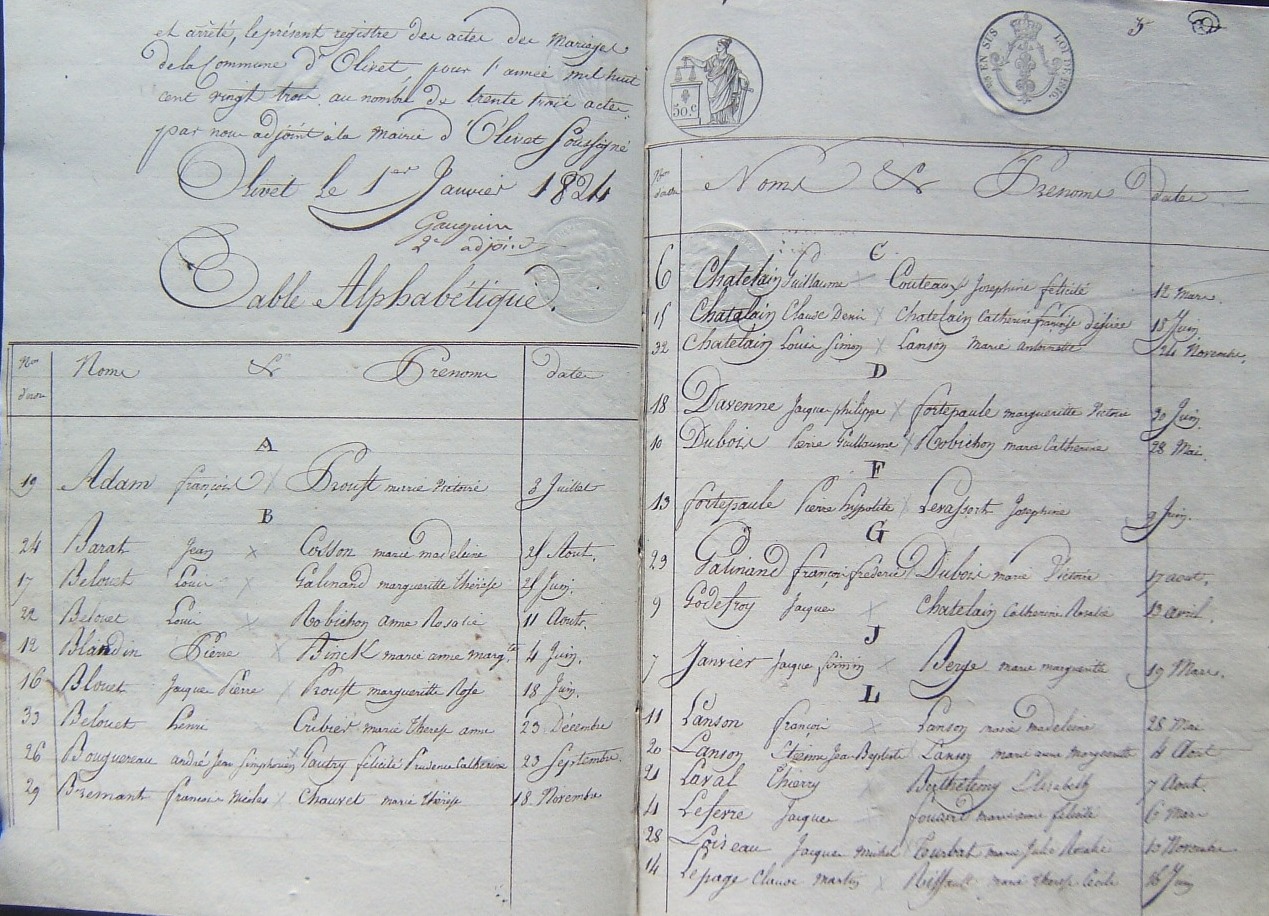 et arrêté, le présent registre des actes des Mariages
de la Commune d'Olivet, pour l'année mil huit
cent vingt trois au nombre de trente trois actes
par nous adjoint à la Mairie d'Olivet Soussigné
Olivet le 1er Janvier 1824
Gauguin
2e adjoint
Table Alphabétique.
Nos Noms & Prenoms dates
A
19 Adam françois X Proust marie victoire 3 Juillet
B
24 Barat Jean X Cosson marie madeleine 25 Aout.
17 Belouet Louis X Galinand margueritte thérèse 25 Juin.
22 Belouet Louis X Robichon anne Rosalie 11 Aout.
12 Blandin Pierre X Binck marie anne margte 4 Juin.
16 Blouet Jacques Pierre X Proust margueritte Rose 18 Juin.
33 Belouet henri X Cribier marie therese anne 23 Décembre
26 Bouguereau andré Jean Simphorien X Gautry félicité Prudence Catherine 23 Septembre.
29 Bremant françois Nicolas X Chauvet marie thérèse 18 Novembre
50.c
LOI DE 1816.
3
Nos Noms & Prenoms dates
C.
6 Chatelain Guillaume X Couteaux Josephine felicité 12 Mars.
15 Chatelain Claude Denis X Chatelain Catherine françoise désirée 18 Juin
32 Chatelain Louis Simon X Lanson marie antoinette 24 Novembre.
D
18 Davenne Jacques philippe X fortepaule margueritte Victoire 30 Juin.
10 Dubois Pierre Guillaume X Robichon marie Catherine 28 Mai.
F
13 fortepaule Pierre hypolite X Levassort Josephine 9 Juin.
G
23 Galinand françois frederic X Dubois marie Victoire 17 aout.
9 Godefroy Jacques X Chatelain Catherine Rosalie 13 avril.
J
7 Janvier Jacques firmin X Berge marie margueritte 19 Mars.
L
11 Lanson françois X Lanson marie madeleine 28 Mai
20 Lanson Etienne Jean Baptiste X Lanson marie anne margueritte 4 Aout
21 Laval Thierry X Berthelemy Elisabeth 7 Aout.
4 Lefevre Jacques X marie anne félicité 6 Mars
28 Loiseau Jacques Michel X Turbat marie Julie Rosalie 10 Novembre
14 Lepage Claude Martin X Riffault marie therese Cecile 16 Juin